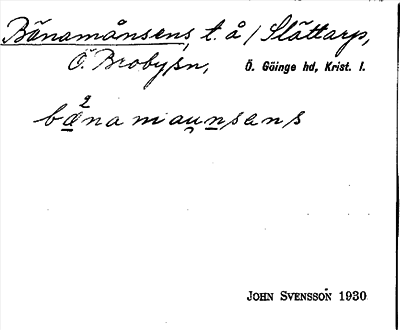 Bönamånsens, t. å / Slättarp,
Ö. Broby sn, Ö. Göinge hd, Krist. l.
bœ̠²na maṵn̠sens
JOHN SVENSSON 1930